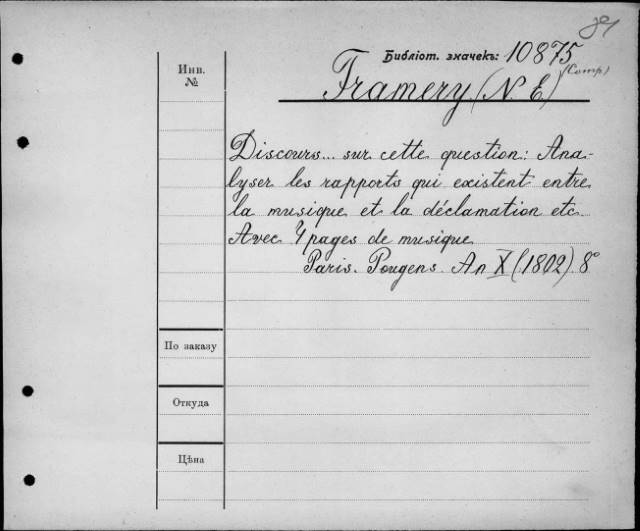 Библіот. значекъ: 10875
Инв.
№
Framery (N. E.) (Comp)
Discours... sur cette question: Ana-
lyser les rapports qui existent entre
la musique et la déclamation etc.
Avec 4 pages de musique
Paris. Pougens. An X (1802) 8°
По заказу
Откуда
Цѣна